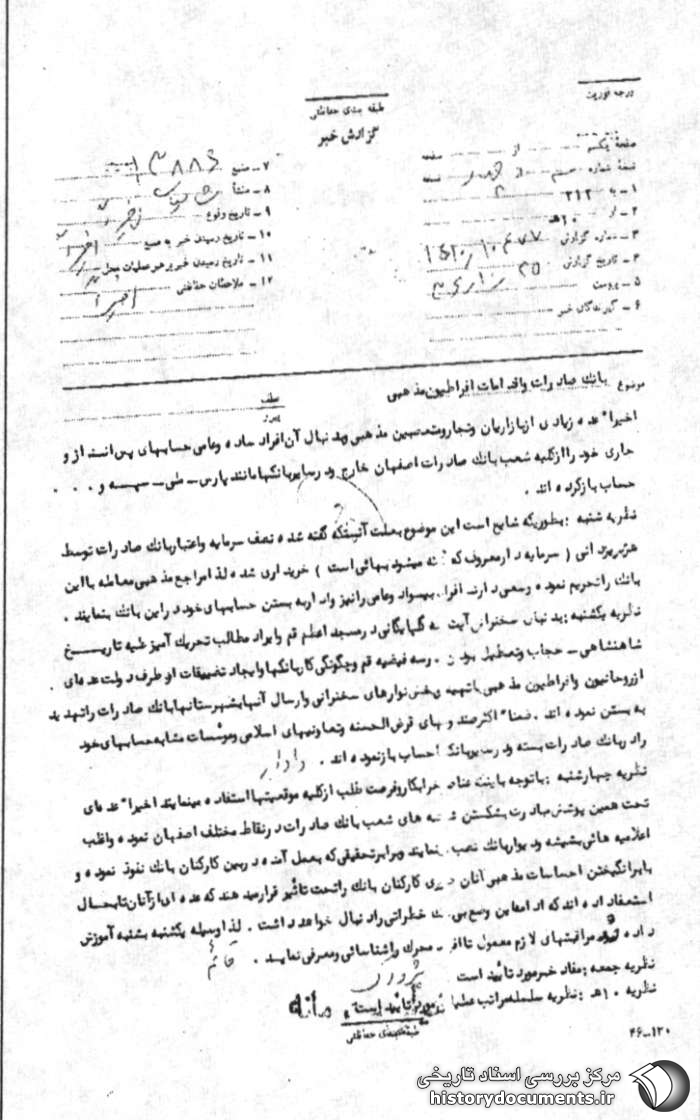 درجه فوریت
طبقه بندی حفاظتی
گزارش خبر
صفحهٔ یکم از صفحه
نسخهٔ شماره نسخه
۱ - به ۳۱۲
۲ - از ۱۰هـ
۳ - شماره گزارش
۴ - تاریخ گزارش
۵ - پیوست
۶ - گیرندگان خبر
۷ - منبع
۸ - منشأ
۹ - تاریخ وقوع
۱۰ - تاریخ رسیدن خبر به منبع
۱۱ - تاریخ رسیدن خبر به رهبر عملیات
۱۲ - ملاحظات حفاظتی
موضوع بانك صادرات واقدامات افراطیون مذهبی
اخیرا" عده زیادی از بازاریان وتجار ومتعصبین مذهبی وبد نبال آن افراد ساده وعامی حسابهای پس انداز و
جاری خود را از کلیه شعب بانك صادرات اصفهان خارج ودرسایر بانکها مانند پارس - ملی - سپه و . . . .
حساب باز کرده اند .
نظریه شنبه : بطوریکه شایع است این موضوع بعلت آنستکه گفته شده نصف سرمایه واعتبار بانك صادرات توسط
هژبر یزدانی ( سرمایه دار معروف که گفته میشود بهائی است ) خریداری شده لذا مراجع مذهبی معامله با این
بانك را تحریم نموده وسعی دارند افراد بیسواد وعامی را نیز وادار به بستن حسابهای خود در این بانك بنمایند .
نظریه یکشنبه : بد نبال سخنرانی آیت گلپایگانی در مسجد اعظم قم وایراد مطالب تحریك آمیز علیه تاریخ
شاهنشاهی - حجاب وتعطیل بودن مدرسه فیضیه قم وچگونگی کار بانکها وایجاد تضییقات از طرف دولت عده ای
از روحانیون وافراطیون مذهبی با تهیه وپخش نوارهای سخنرانی وارسال آنها بشهرستانها بانك صادرات را تهدید
به بستن نموده اند . ضمنا" اکثر صندوقهای قرض الحسنه وتعاونیهای اسلامی ومؤسسات مشابه حسابهای خود
را در بانك صادرات بسته ودر سایر بانکها حساب باز نموده اند .
نظریه چهارشنبه : با توجه باینکه عناصر خرابکار وفرصت طلب از کلیه موقعیتها استفاده مینمایند اخیرا" عده ای
تحت همین پوشش مبادرت بشکستن شیشه های شعب بانك صادرات در نقاط مختلف اصفهان نموده واغلب
اعلامیه هائی بشیشه ودیوار بانك نصب مینمایند وبرابر تحقیقی که بعمل آمده در بین کارکنان بانك نفوذ نموده و
با برانگیختن احساسات مذهبی آنان کارکنان بانك را تحت تأثیر قرار میدهند که عده ای از آنان تابحال
استعفا داده اند که ادامه این وضع خطراتی را بد نبال خواهد داشت . لذا وسیله یکشنبه بشنبه آموزش
داده شد مراقبتهای لازم معمول تا افراد محرك را شناسائی ومعرفی نماید .
نظریه جمعه : مفاد خبر مورد تأیید است
نظریه ۱۰هـ : نظریه سلسله مراتب عملیات مورد تأیید است .
طبقه بندی حفاظتی
۴۶-۱۲۰
مرکز بررسی اسناد تاریخی
historydocuments.ir